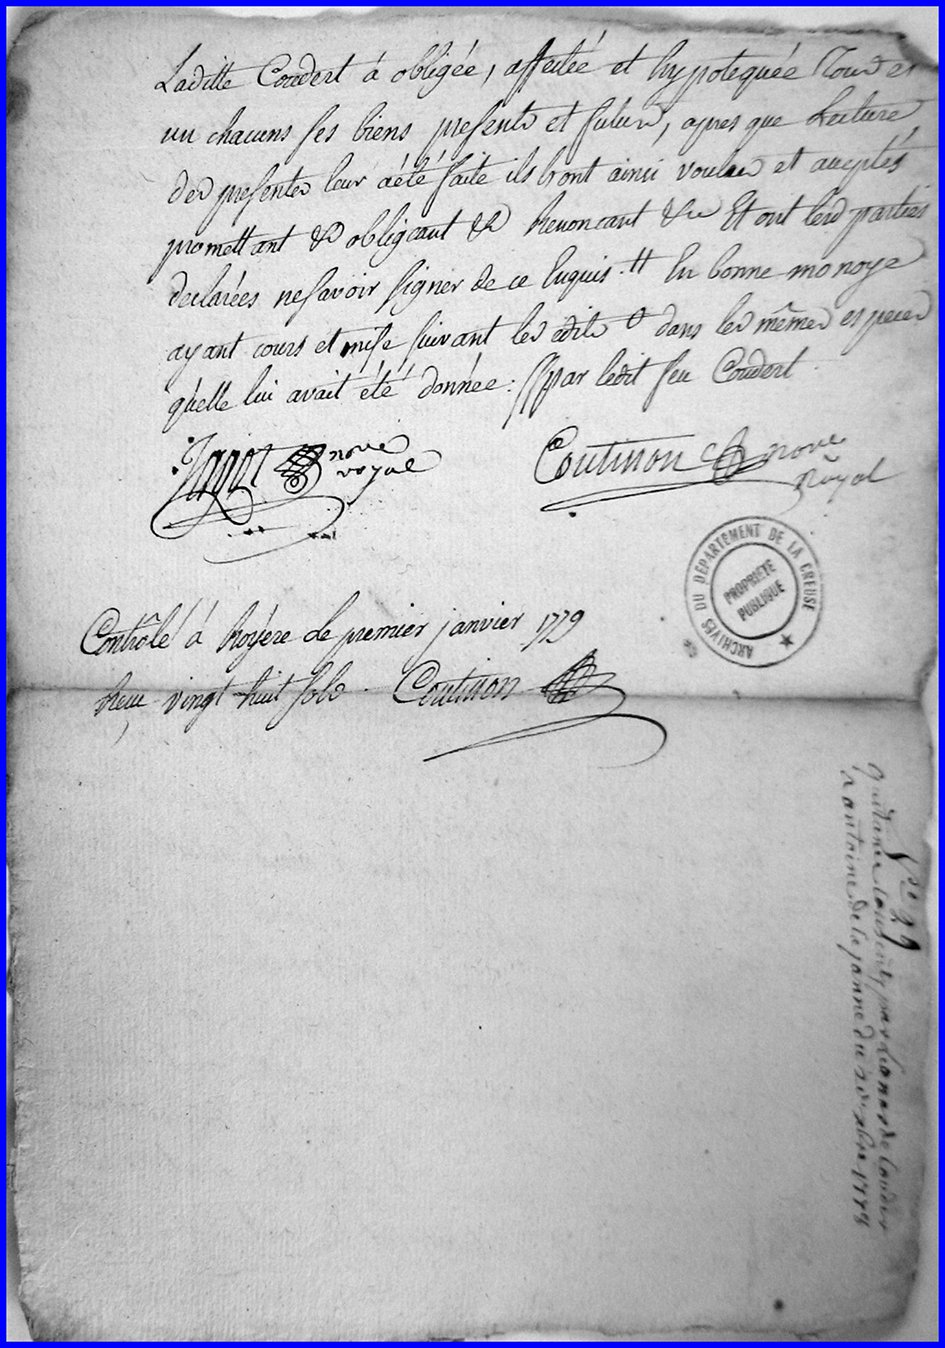 Laditte Coudert á obligée, affectée et hypotequée Tous et
un chacuns ses biens presents et futurs, apres que Lecture
des presentes leur aété faite ils lont ainsi voulue et aceptés
promettant &a obligeant &a Renoncant &a Et ont lesd parties
declarées nesavoir signer de ce Enquis. tt En bonne monoye
ayant cours et mise suivant les edits o dans les mêmes especes
quelle lui avait été donnée : // par ledit feu Coudert
Jagot nore
royal
Coutinon nore
Royal
ARCHIVES DU DÉPARTEMENT DE LA CREUSE
PROPRIÉTÉ
PUBLIQUE
Contrôlé á Royère le premier janvier 1779
Reçu vingt huit sols Coutinon
29
Quittance par Leonarde Coudert
a antoine de la janne du 1778